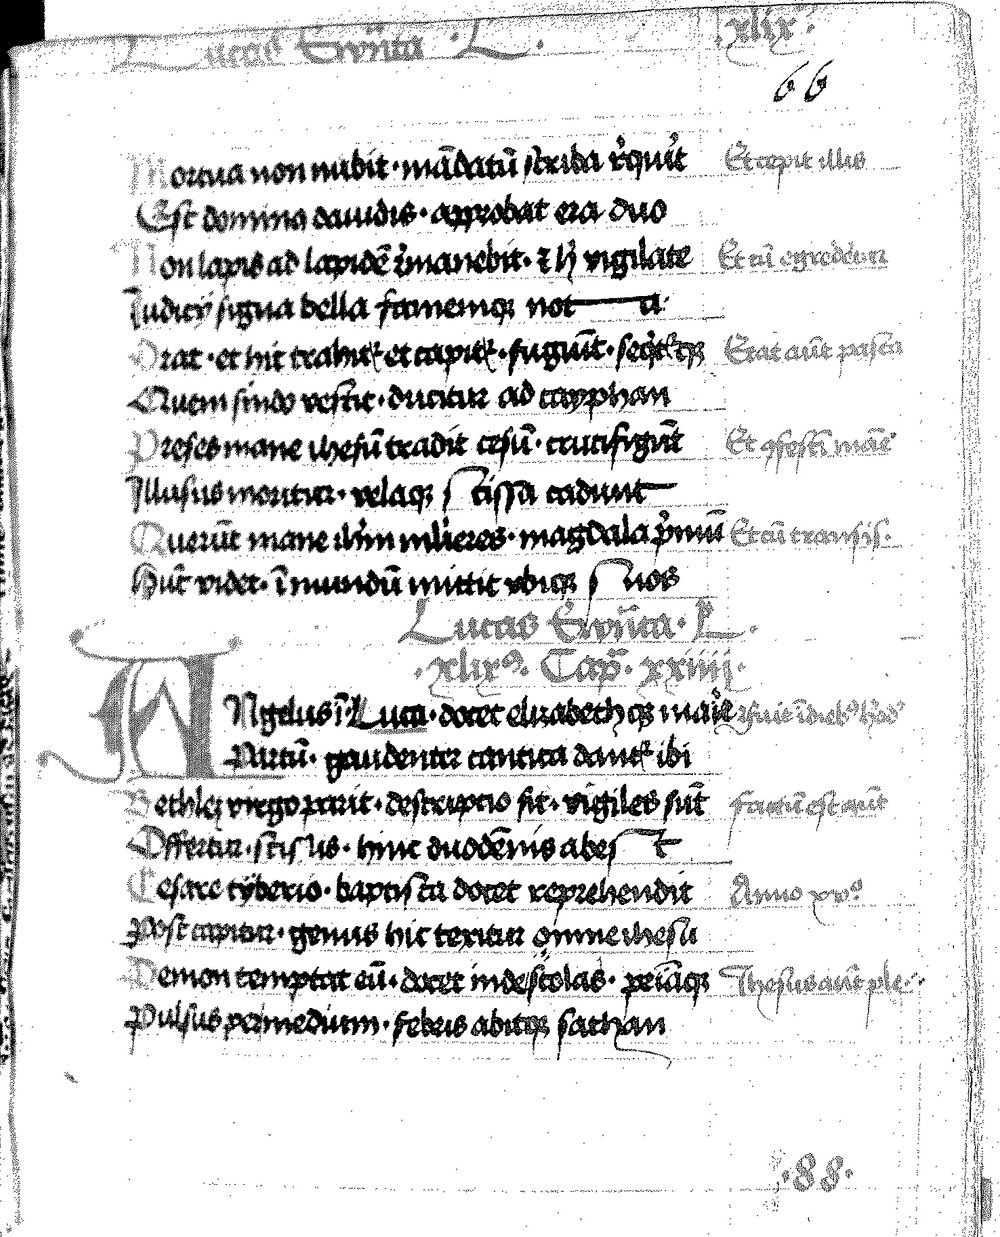 Lucas Ewãta · L · xlix
66
Mortua non nubit · mãdatũ scriba reqͥuit Et cepit illis
Est domino dauidis · approbat era duo
Non lapis ad lapidẽ remanebit · ⁊ vigilate Et cũ egredetur
Iudicij signa bella famemqꝫ not a·
Orat · et hic trahitͬ et capitͬ · fugiũt · Erat aũt pasca
Quem sindo vestit · ducitur ad cayphan
Preses mane ihesũ tradit cesũ · crucifigũt Et mãe
Illusus moritur · velaqꝫ scissa cadunt
Querũt mane ihm mlieres · magdala pͥmũ Et cũ transis·
Hũc videt · ĩ mundũ mittit vbiqꝫ suos
Lucas Ewãta · L ·
· xlixꝰ · Cap̃ · xxiiij ·
ANgelus ĩ Luca · docet elizabeth qꝫ Fuit ĩ diebꝰ
Partũ · gaudenter cantica dantͬ ibi
Bethleꝫ virgo parit · descriptio fit · vigiles sũt factũ est aũt
Offertur · scisus · hinc duodẽnis abest
Cesare tyberio · baptista docet reprehendit Anno xvͦ
Post capitur · genus hic texitur omne ihesu
Demon temptat eũ · docet inde scolas · Ihesus aũt ple ·
Pulsus per medium · febris abitqꝫ sathan
· 88 ·